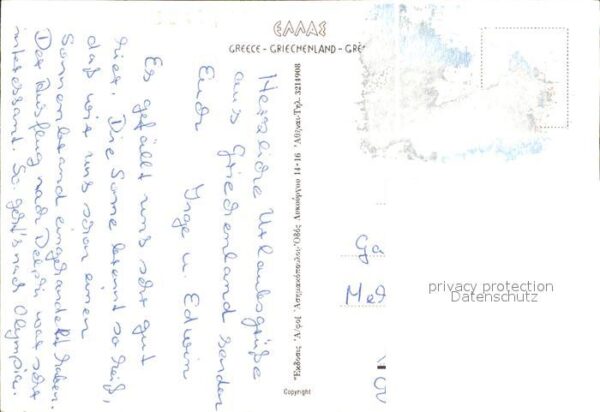 ΕΛΛΑΣ
GREECE - GRIECHENLAND - GRÈ
Herzliche Urlaubsgrüße
aus Griechenland senden
Euch
Inge u. Edwin
Es gefällt uns sehr gut
hier. Die Sonne brennt so heiß,
daß wir uns schon einen
Sonnenbrand eingehandelt haben.
Der Ausflug nach Delphi war sehr
interessant. So. geht's nach Olympia.
Ἐκδόσεις Ἀφοί Ὁδὸς Λυκούργου 14-16 Ἀθῆναι-Τηλ. 3214908
Copyright
privacy protection
Datenschutz